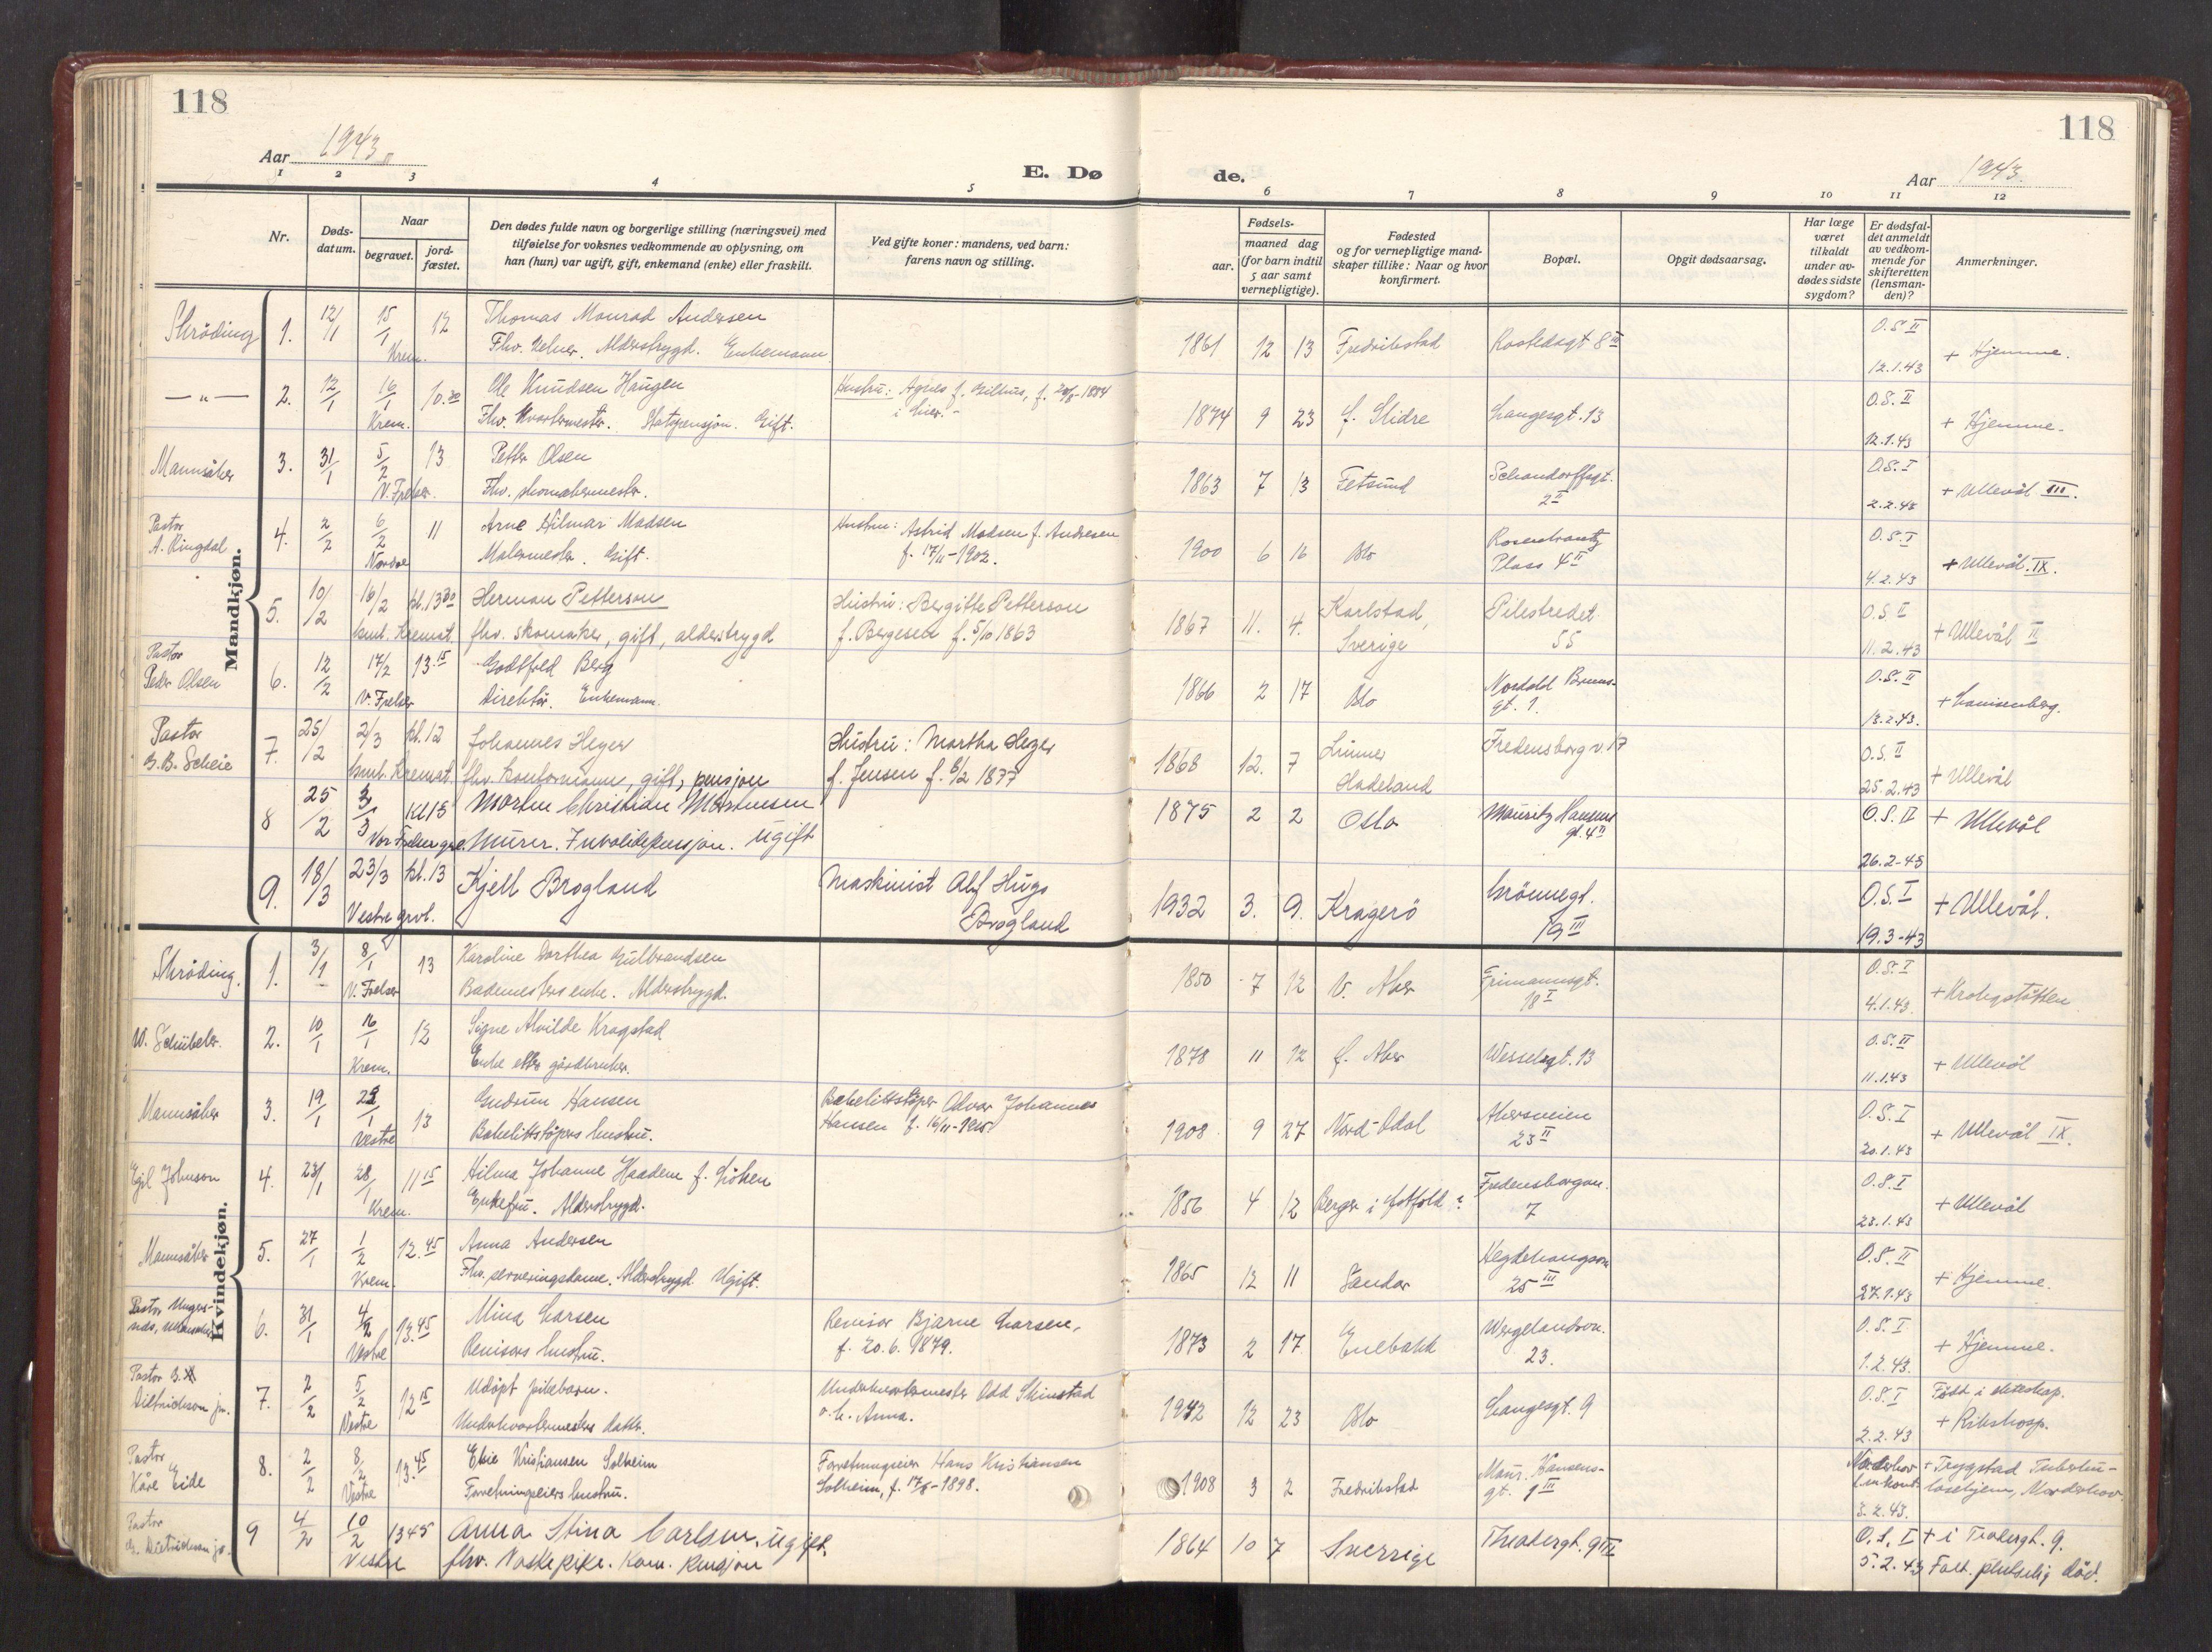 118
118
Aar 1943
E. Dø de.
Aar 1943.
1 2 3 4 5 6 7 8 9 10 11 12
Nr.
Døds-
datum.
Naar
begravet.
jord-
fæstet.
Den dødes fulde navn og borgerlige stilling (næringsvei) med
tilføielse for voksnes vedkommende av oplysning, om
han (hun) var ugift, gift, enkemand (enke) eller fraskilt.
Ved gifte koner: mandens, ved barn:
farens navn og stilling.
Fødsels-
aar.
maaned dag
(for barn indtil
5 aar samt
vernepligtige).
Fødested
og for vernepligtige mand-
skaper tillike: Naar og hvor
konfirmert.
Bopæl.
Opgit dødsaarsag.
Har læge
været
tilkaldt
under av-
dødes sidste
sygdom?
Er dødsfal-
det anmeldt
av vedkom-
mende for
skifteretten
(lensman-
den)?
Anmerkninger.
Mandkjøn.
Skrøding 1. 12/1 15/1 12 Thomas Monrad Andersen O.S. II
Krem. Fhv. kelner. Alderstrygd. Enkemann. 1861 12 13 Fredrikstad Rostedsgt 8 III 12.1.43 + Hjemme.
— " — 2. 12/1 16/1 10.30 Ole Knudsen Haugen Hustru: Agnes f. Gilhus, f. 1884 O.S. II
Krem. Fhv. Kvartermester. Statspensjon. Gift. i Lier. 1874 9 23 f. Slidre Langesgt. 13 12.1.43 + Hjemme.
Mannsåker 3. 31/1 5/2 13 Petter Olsen Schandorffsgt. O.S. I
V. Frelser. Fhv. skomakermester. 1863 7 13 Fetsund 2 II 2.2.43 + Ullevål III.
Pastor 4. 2/2 6/2 11 Arne Hilmar Madsen Hustru: Astrid Madsen f. Andresen Rosenkrantz O.S. I
A. Ringdal Nordre Malermester. Gift. f. 17/11-1902. 1900 6 16 Oslo Plass 4 II 4.2.43 + Ullevål. IX.
5. 10/2 16/2 kl. 13 30 Herman Petterson Hustru: Bergitte Petterson 1867 11. 4. Karlstad, Pilestredet O.S. II
Kremat. fhv. skomaker, gift, alderstrygd f. Bergesen f. 5/10 1863 Sverige 55 11.2.43 + Ullevål II
Pastor 6. 12/2 17/2 13.15 Godtfred Berg O.S. II
Peder Olsen V. Frelser Direktør. Enkemann. 1866 2 17 Oslo Nordahl Bruns- gt. 1. 13.2.43. + Lovisenberg.
Pastor 7. 25/2 2/3 kl. 12 Johannes Heger Hustru: Martha Heger 1868 12. 7 Lunner Fredensborgv. 17 O.S. II
G.B. Scheie Kremat. fhv. kontormann, gift, pensjon f. Jensen f. 6/2 1877 Hadeland 25.2.43 + Ullevål
8 25/2 3/3 Kl 13 Morten Christian Mortensen 1875 2 2 Oslo Mauritz Hansens O.S. II + Ullevål
Vor Frelser grl. Murer. Invalidepensjon. Ugift gt. 4 II 26.2-43
9. 18/3 23/3 kl. 13 Kjell Brogland Maskinist Alf Hugo 1932 3. 9. Kragerø Grönnegt. O.S. I + Ullevål.
Vestre grvl. Brogland 19 III 19.3-43
Kvindekjøn.
Skrøding. 1. 3/1 8/1 13 Karoline Dorthea Gulbrandsen 1850 7 12 V. Aker Frimannsgt. O.S. I
V. Frelser Bademesters enke. Alderstrygd. 18 I 4.1.43. + Krohgstötten
W. Schübeler. 2. 10/1 16/1 12 Signe Alvilde Krogstad O.S. II
Krem. Enke etter gårdbruker. 1878 11 12 f. Aker Wesselsgt. 13 11.1.43 + Ullevål
Mannsåker 3. 19/1 1 13 Gudrun Hansen Bakelittstöper Alvar Johannes Akersveien O.S. I
Vestre Bakelittstöpers hustru. Hansen f. 16/11-1905 1908 9 27 Nord-Odal 23 II 20.1.43 + Ullevål IX.
Egil Johnson 4. 23/1 28/1 11 15 Hilma Johanne Haadem f. Löken Fredensborgvn. O.S. I
Krem. Enkefru. Alderstrygd. 1856 4 12 Berger i Östfold? 7 23.1.43 + Ullevål
Mannsåker 5. 27/1 1/2 12.45 Anna Andersen Hegdehaugsvn O.S. II
Krem. Fhv. serveringsdame. Alderstrygd. Ugift. 1865 12 11 Sandar 25 III 27.1.43 + Hjemme.
Pastor 6. 31/1 4/2 13.45 Mina Larsen Revisor Bjarne Larsen, Wergelandsvn. O.S. I
Vestre Revisors hustru. f. 20.6.1879. 1873 2 17 Enebakk 23. 1.2.43. + Hjemme.
Pastor 7. 2/2 5/2 12 15 Udöpt pikebarn. Underkvartermester Odd Skinstad O.S. I Född i ekteskap.
Dietrichson jr. Vestre Underkvartermesters datter. o.h. Anna. 1942 12 23 Oslo Langesgt. 9 2.2.43 + Rikshosp.
Pastor 8. 2/2 8/2 13.45 Elsie Kristiansen Solheim Forretningseier Hans Kristiansen Maur. Hansens- Norderhov + Trygstad Tuberku-
Kåre Eide Vestre Forretningseiers hustru. Solheim, f. 1898. 1908 3 2 Fredrikstad gt. III losehjem, Norderhov
3.2.43.
Pastor 9 4/2 10/2 1345 Anna Stina Carlson, ugift. 1864 10 7 Sverrige Theatergt. 9 O.S. I + i Teatergt. 9.
Dietrichson jr. Vestre fhv. Vaskepike. Kom. pensjon 5.2.43 Falt plutselig död.